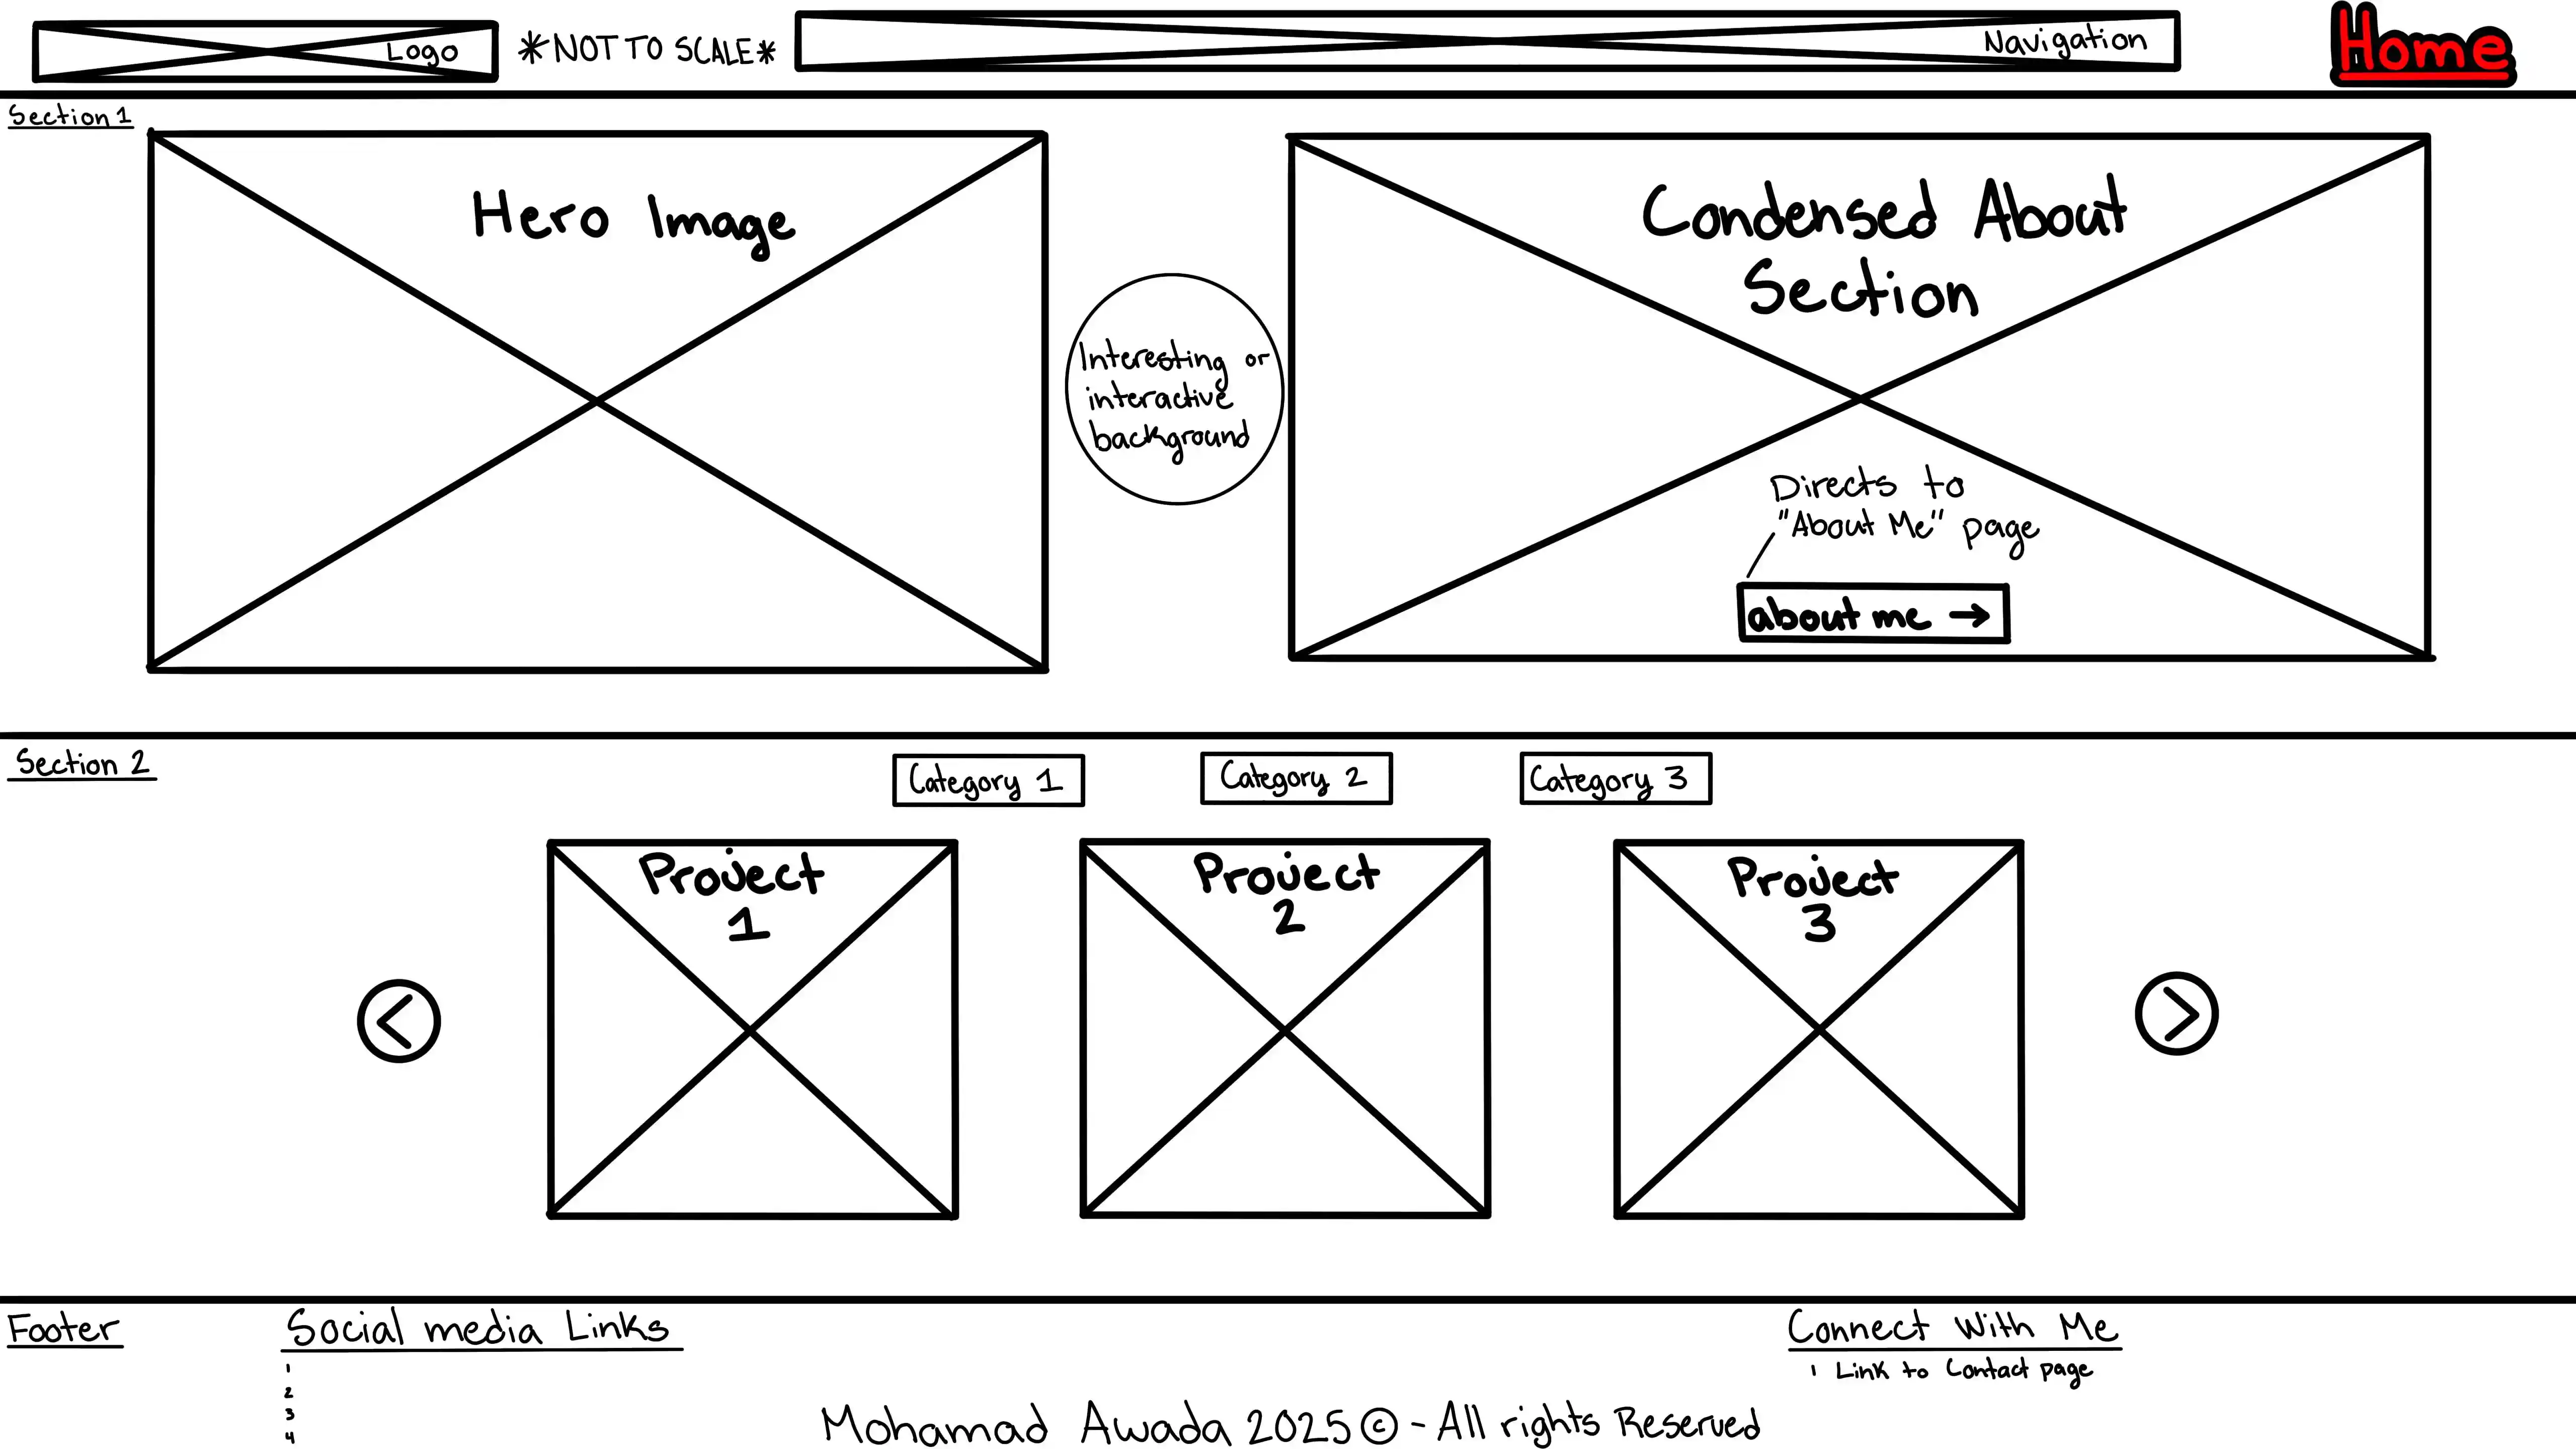 Logo
*NOT TO SCALE*
Navigation
Home
Section 1
Hero Image
Interesting or
interactive
background
Condensed About
Section
Directs to
"About Me" page
about me →
Section 2
Category 1
Category 2
Category 3
Project
1
Project
2
Project
3
<
>
Footer
Social media Links
1
2
3
4
Connect With Me
1 Link to Contact page
Mohamad Awada 2025 © - All rights Reserved